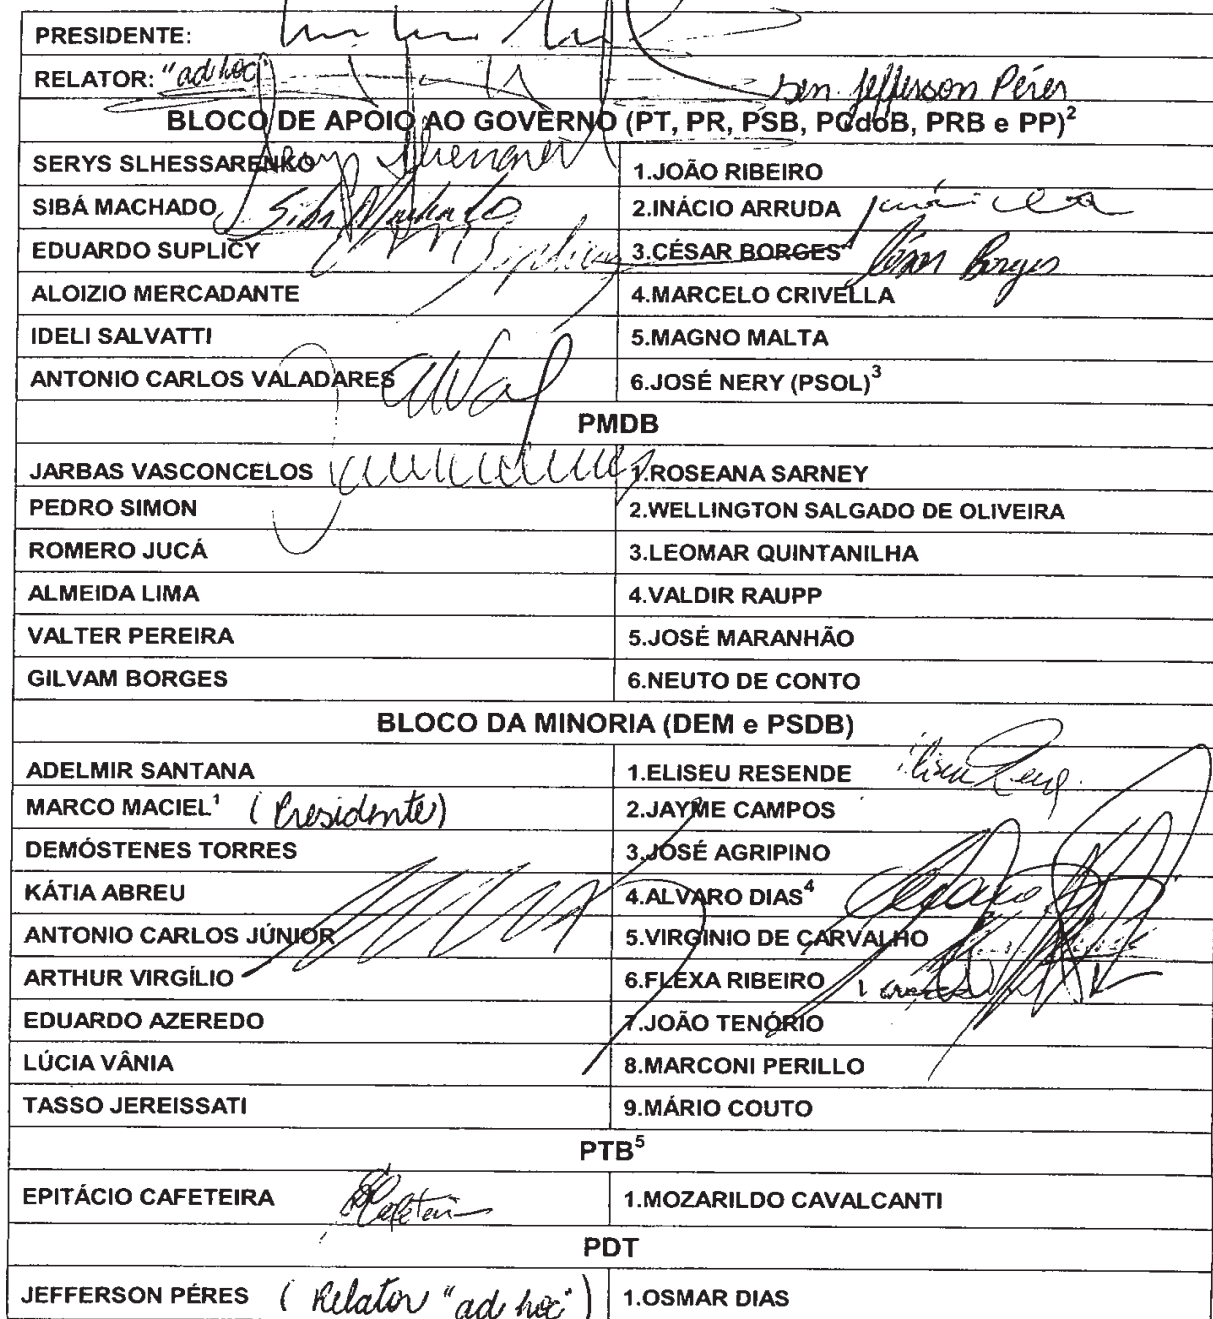 PRESIDENTE:
RELATOR: "ad hoc" Sen. Jefferson Péres
BLOCO DE APOIO AO GOVERNO (PT, PR, PSB, PCdoB, PRB e PP)²
SERYS SLHESSARENKO 1.JOÃO RIBEIRO
SIBÁ MACHADO Sibá Machado 2.INÁCIO ARRUDA Inácio
EDUARDO SUPLICY Suplicy 3.CÉSAR BORGES⁴ César Borges
ALOIZIO MERCADANTE 4.MARCELO CRIVELLA
IDELI SALVATTI 5.MAGNO MALTA
ANTONIO CARLOS VALADARES 6.JOSÉ NERY (PSOL)³
PMDB
JARBAS VASCONCELOS 1.ROSEANA SARNEY
PEDRO SIMON 2.WELLINGTON SALGADO DE OLIVEIRA
ROMERO JUCÁ 3.LEOMAR QUINTANILHA
ALMEIDA LIMA 4.VALDIR RAUPP
VALTER PEREIRA 5.JOSÉ MARANHÃO
GILVAM BORGES 6.NEUTO DE CONTO
BLOCO DA MINORIA (DEM e PSDB)
ADELMIR SANTANA 1.ELISEU RESENDE
MARCO MACIEL¹ (Presidente) 2.JAYME CAMPOS
DEMÓSTENES TORRES 3.JOSÉ AGRIPINO
KÁTIA ABREU 4.ALVARO DIAS⁴
ANTONIO CARLOS JÚNIOR 5.VIRGINIO DE CARVALHO
ARTHUR VIRGÍLIO 6.FLEXA RIBEIRO
EDUARDO AZEREDO 7.JOÃO TENÓRIO
LÚCIA VÂNIA 8.MARCONI PERILLO
TASSO JEREISSATI 9.MÁRIO COUTO
PTB⁵
EPITÁCIO CAFETEIRA 1.MOZARILDO CAVALCANTI
PDT
JEFFERSON PÉRES (Relator "ad hoc") 1.OSMAR DIAS